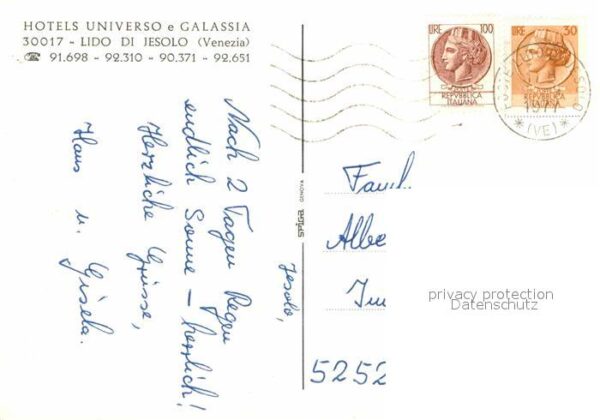 HOTELS UNIVERSO e GALASSIA
30017 - LIDO DI JESOLO (Venezia)
☎ 91.698 - 92.310 - 90.371 - 92.651
LIRE 100
REPVBBLICA
ITALIANA
LIRE 30
REPVBBLICA
ITALIANA
1977
* (VE) *
Jesolo,
Nach 2 Tagen Regen
endlich Sonne – herrlich!
Herzliche Grüsse,
Hans u. Gisela.
GENOVA
Fam
Albe
5252
privacy protection
Datenschutz